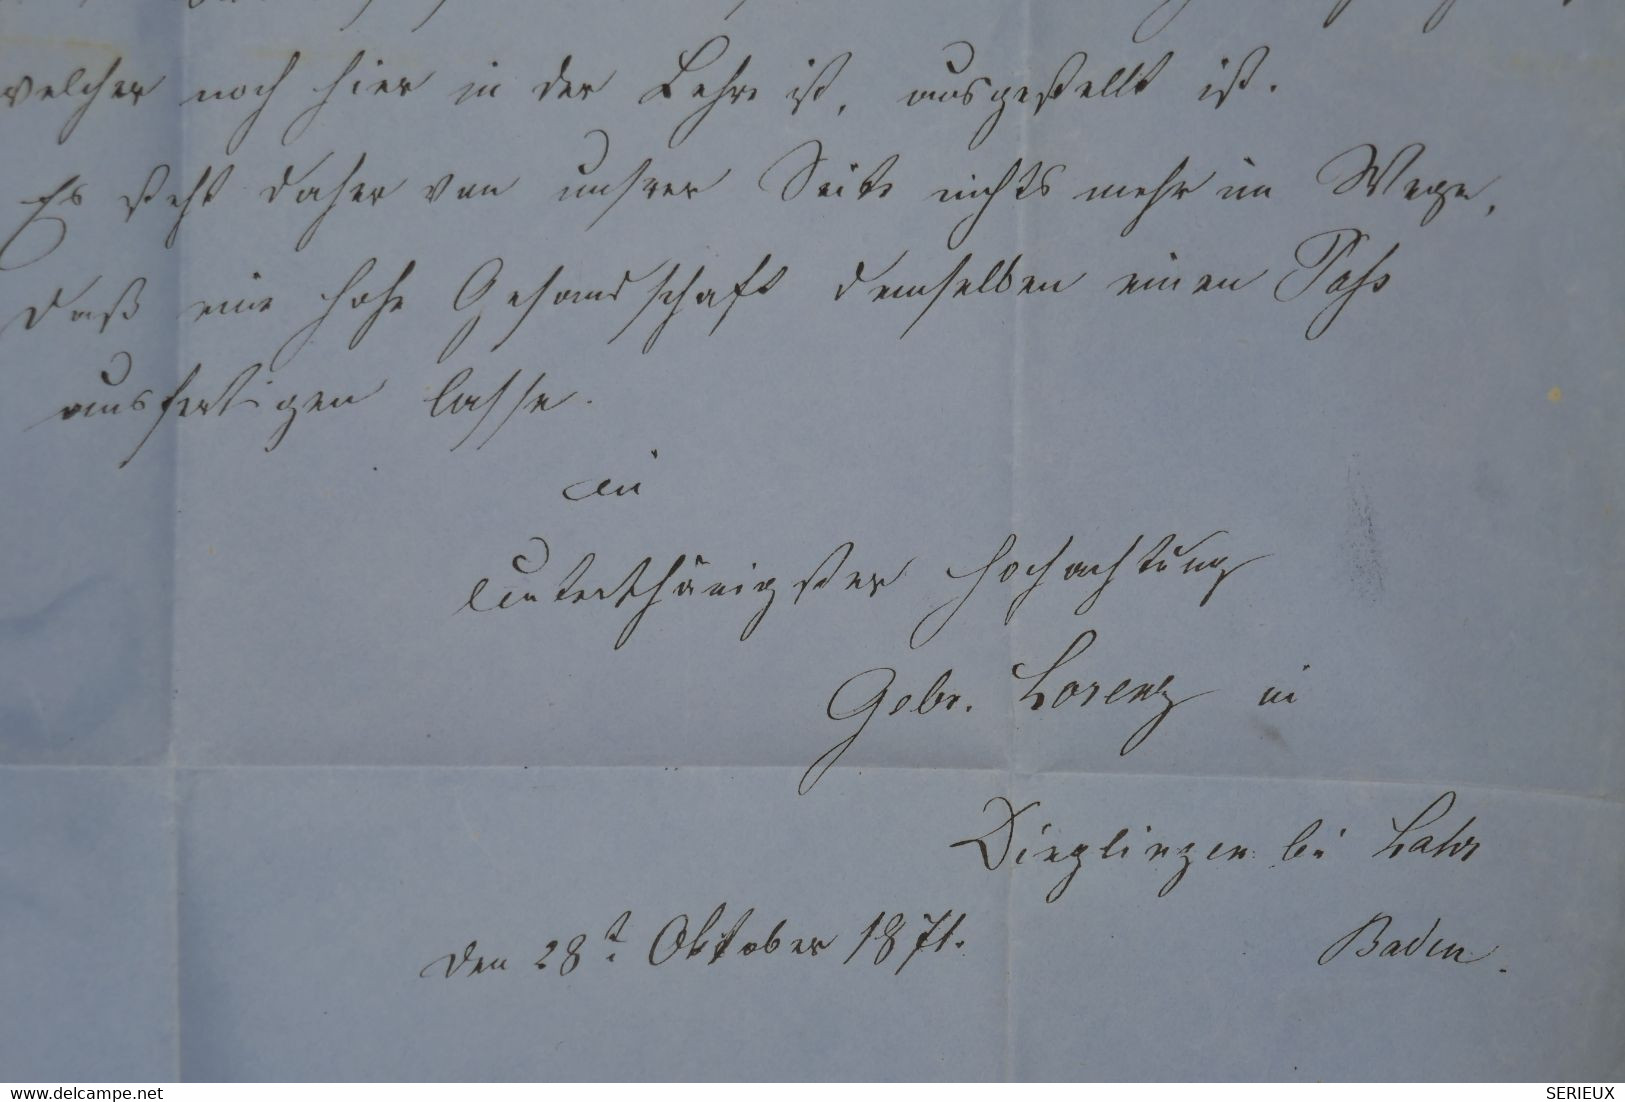 welcher noch hier in der Lehre ist, ausgestellt ist.
Es steht daher von unsrer Seite nichts mehr im Wege,
daß eine hohe Gesandschaft demselben einen Paß
ausfertigen lasse.
in
unterthänigster Hochachtung
Gebr. Lorenz in
Dinglingen bei Lahr
Baden.
den 28t. Oktober 1871.
www.delcampe.net
SERIEUX